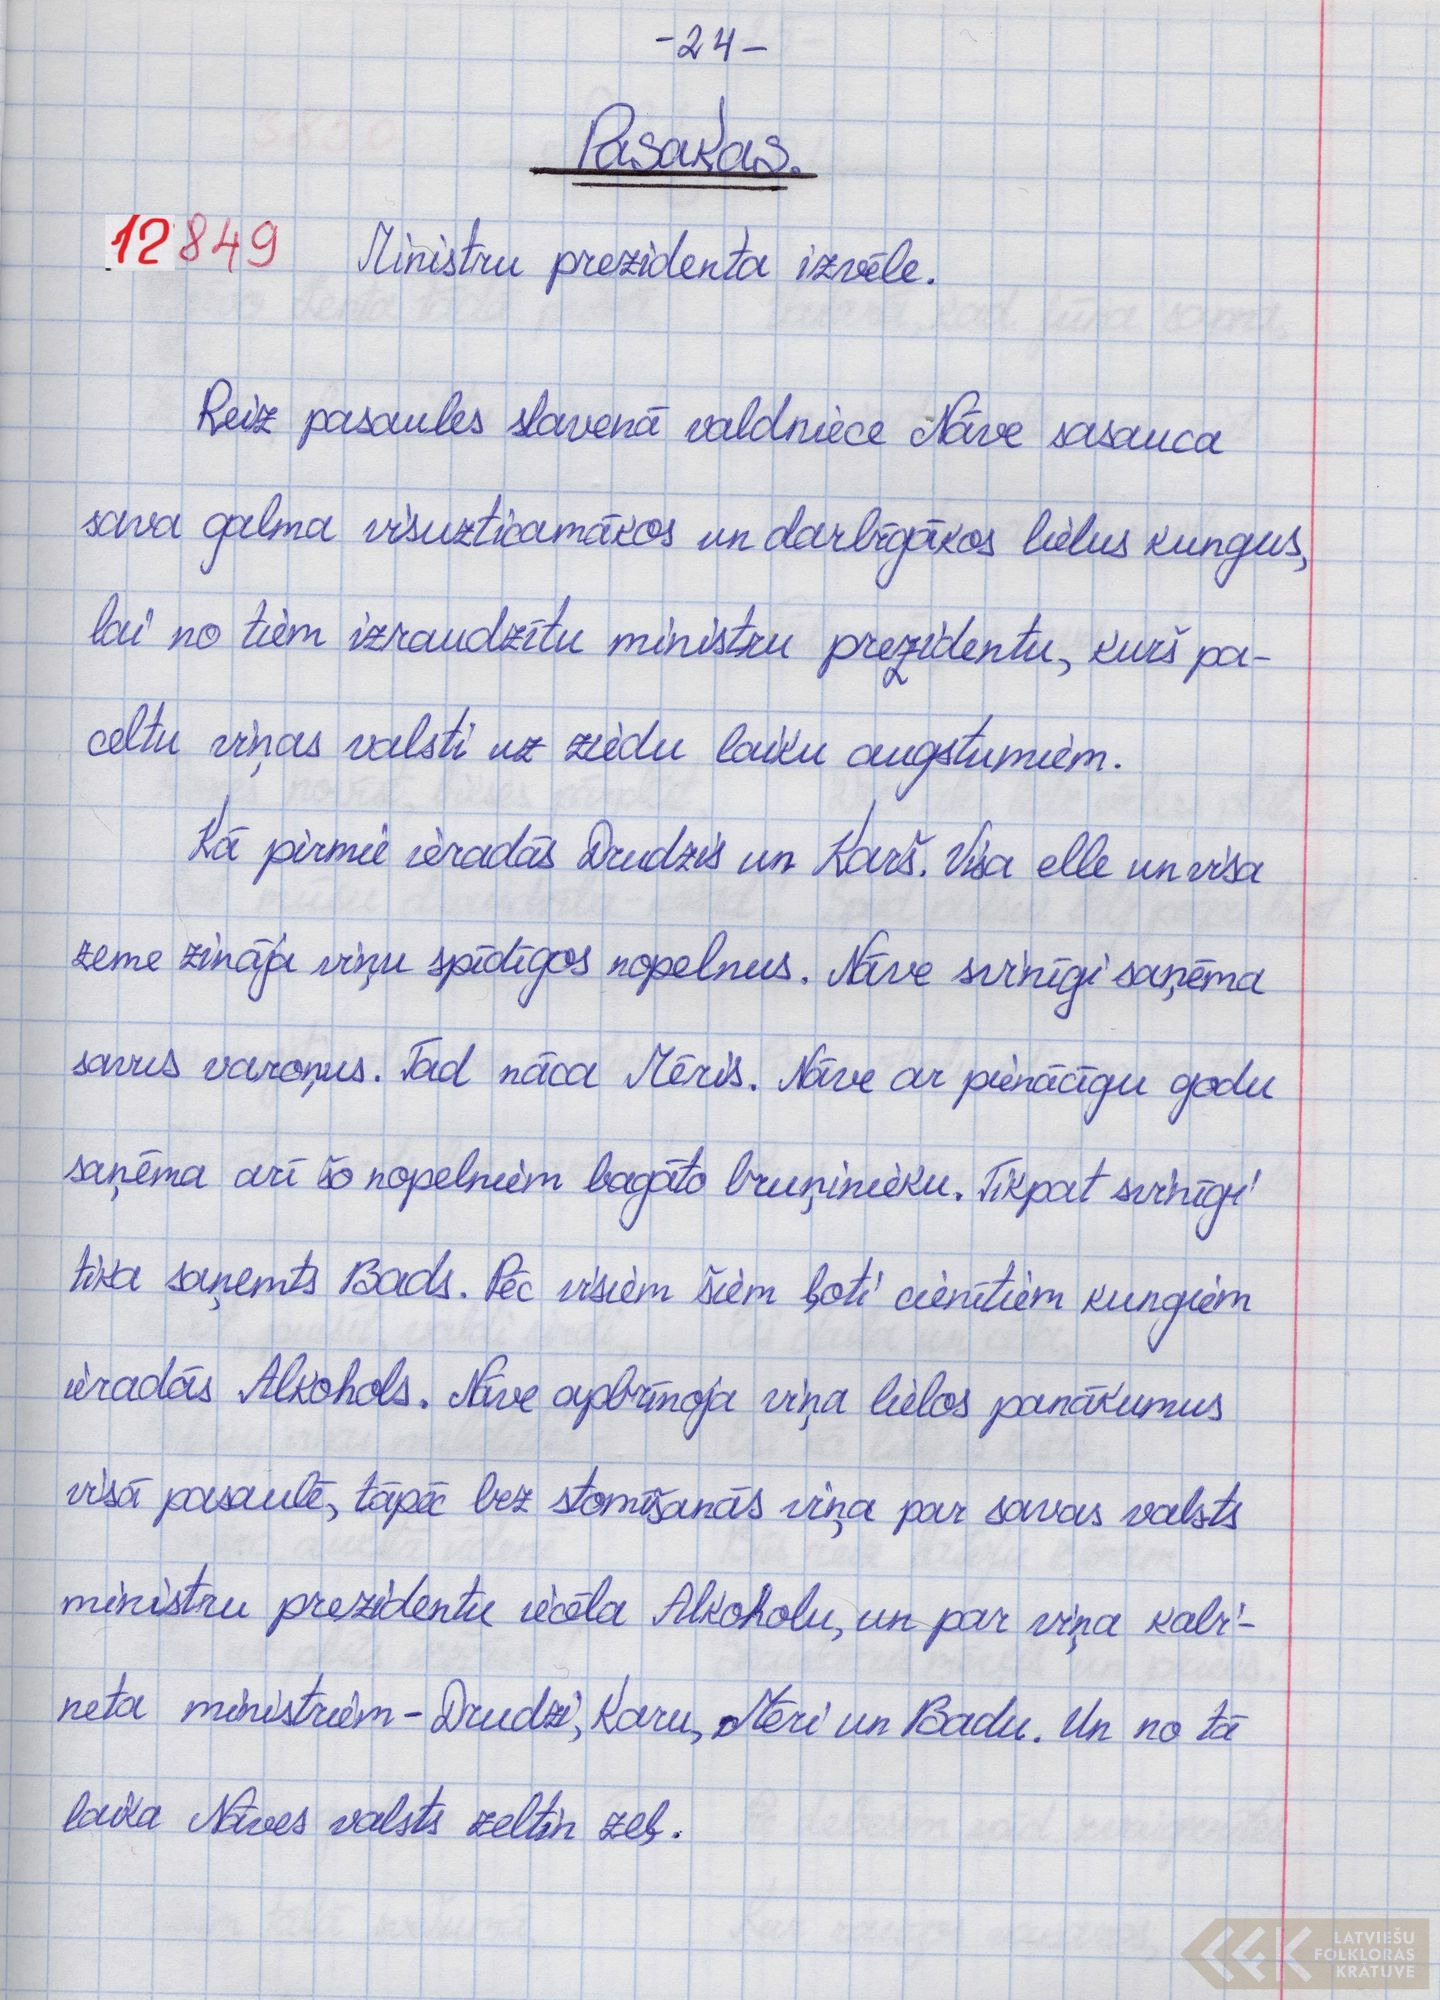 -24-
Pasakas.
12849 Ministru prezidenta izvēle.
Reiz pasaules slavenā valdniece Nāve sasauca
sava galma visuzticamākos un darbīgākos lielus kungus,
lai no tiem izraudzītu ministru prezidentu, kurš pa-
celtu viņas valsti uz ziedu laiku augstumiem.
Kā pirmie ieradās Drudzis un Karš. Visa elle un visa
zeme zināja viņu spīdīgos nopelnus. Nāve svinīgi saņēma
savus varoņus. Tad nāca Mēris. Nāve ar pienācīgu godu
saņēma arī šo nopelniem bagāto bruņinieku. Tikpat svinīgi
tika saņemts Bads. Pēc visiem šiem ļoti cienītiem kungiem
ieradās Alkohols. Nāve apbrīnoja viņa lielos panākumus
visā pasaulē, tāpēc bez stomīšanās viņa par savas valsts
ministru prezidentu iecēla Alkoholu, un par viņa kabi-
neta ministriem - Drudzi, Karu, Mēri un Badu. Un no tā
laika Nāves valsts zeltin zeļ.
LATVIEŠU
FOLKLORAS
KRĀTUVE